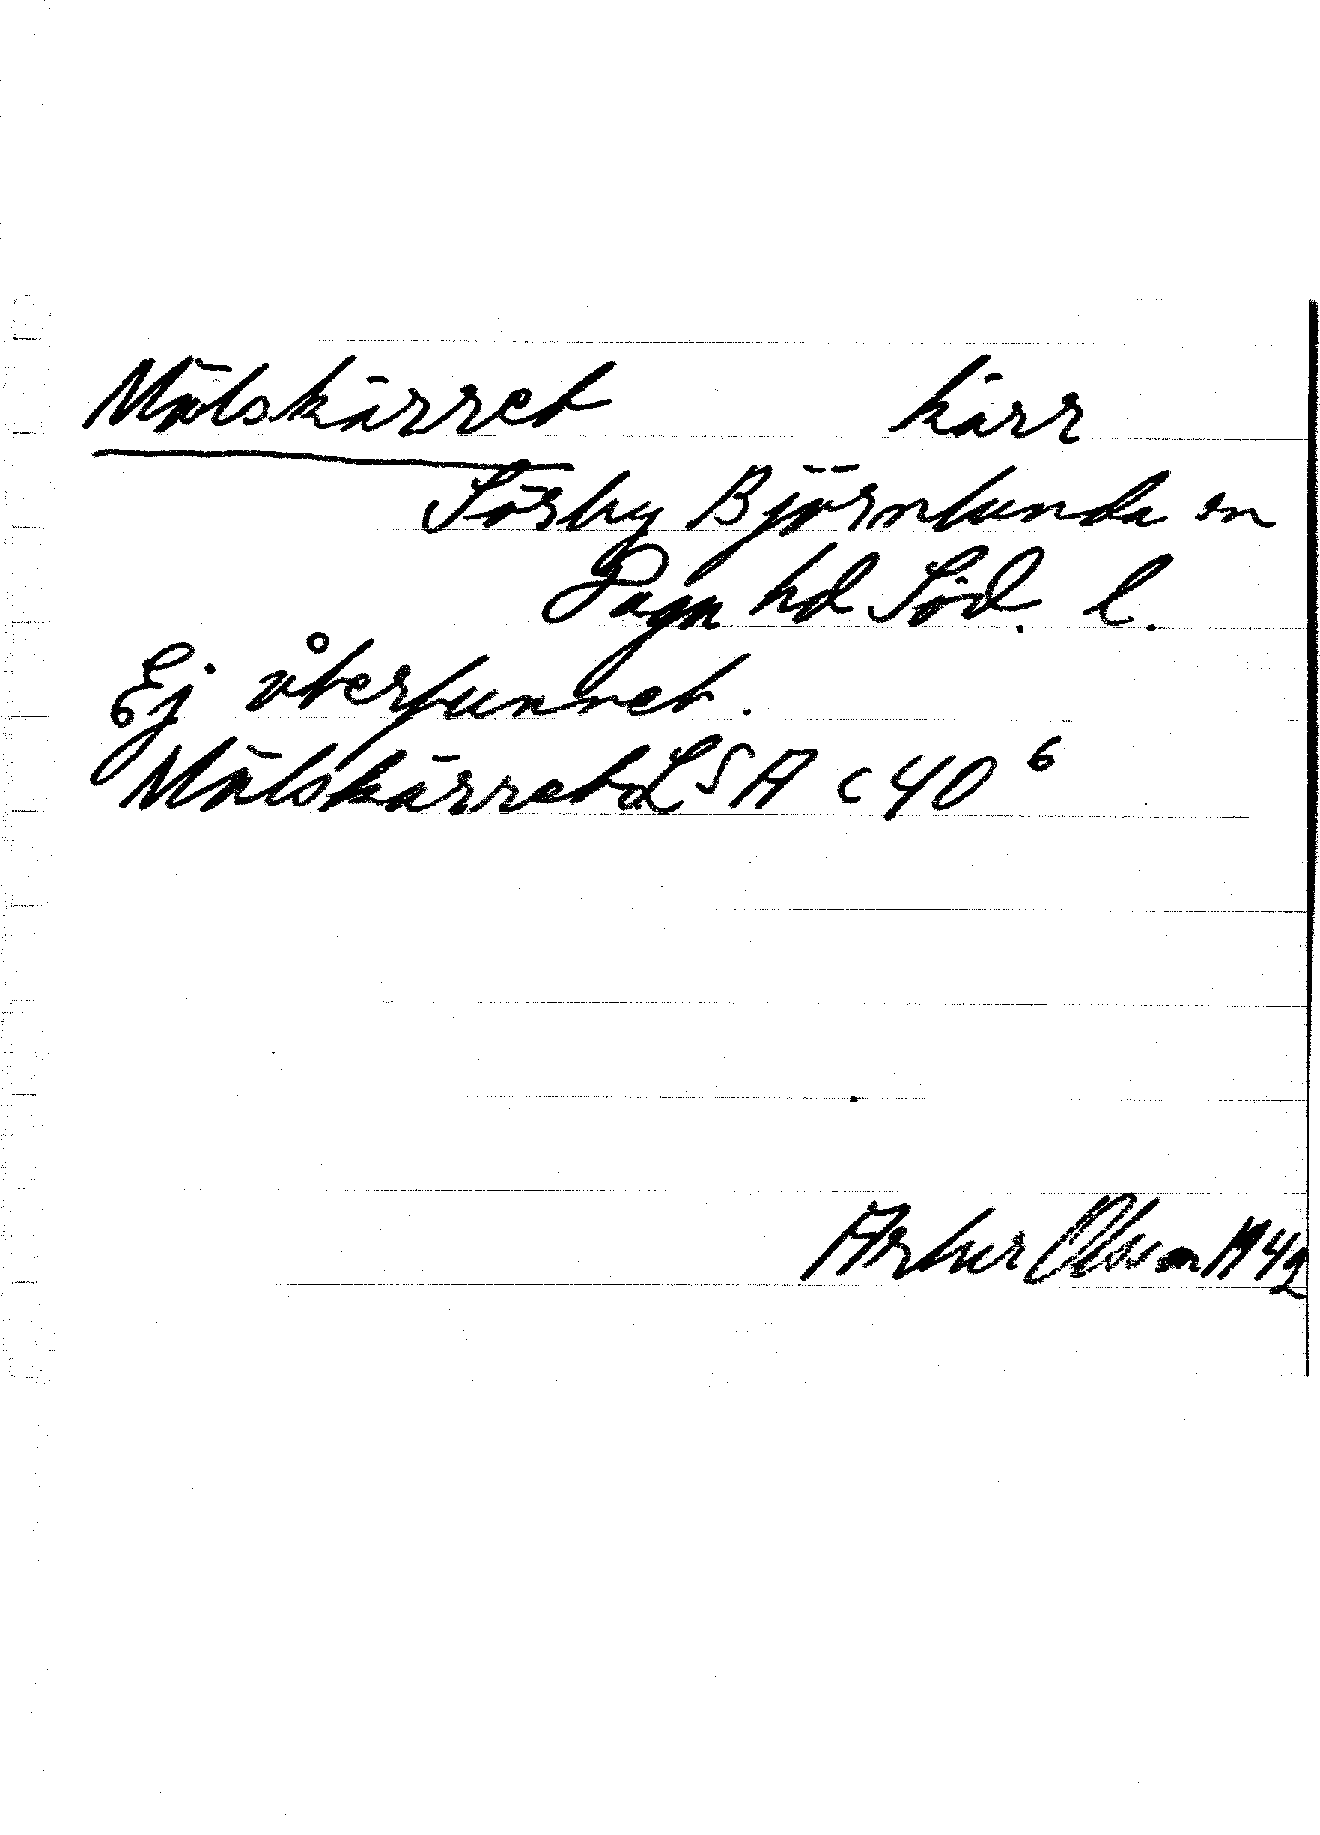 Mälskärret kärr
Sörby Björnlunda sn
Daga hd Söd. l.
Ej återfunnet.
Mälskärret LSA C 40⁶
Arthur Olsson 1942